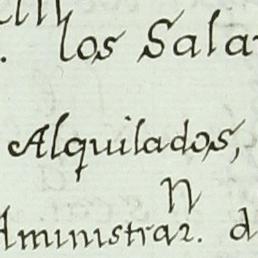 los Sala
Alquilados,
Administraᵑ. d